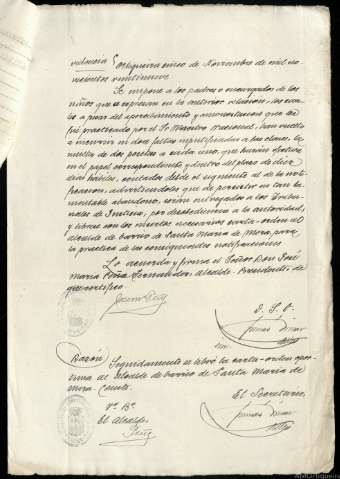 videncia} Ortigueira cinco de Noviembre de mil no-
vecientos veintinueve
Se impone a los padres o encargados de los
niños que se expresan en la anterior relación, los cua-
les a pesar del apercibimiento y amonestación que les
fué practicado por el Sr Maestro Nacional, han vuelto
a incurrir en dos faltas injustificadas a las clases, la
multa de dos pesetas a cada uno, que harán efectiva
en el papel correspondiente y dentro del plazo de diez
días hábiles, contados desde el siguiente al de la noti-
ficación, advirtiéndoles que de persistir en tan la-
mentable abandono, serán entregados a los Tribu-
nales de Justicia, por desobediencia a la autoridad,
y líbrese con los insertos necesarios carta-orden al
alcalde de barrio de Santa María de Mera, para
la práctica de las consiguientes notificaciones
Lo acuerda y firma el Señor Don José
María Peña Fernández, alcalde-Presidente de
que certifico
D. S. O.
Razón} Seguidamente se libró la carta-orden opor-
tuna al alcalde de barrio de Santa María de
Mera. Conste.
Vº Bº
El Alcalde,
Peña
El Secretario,